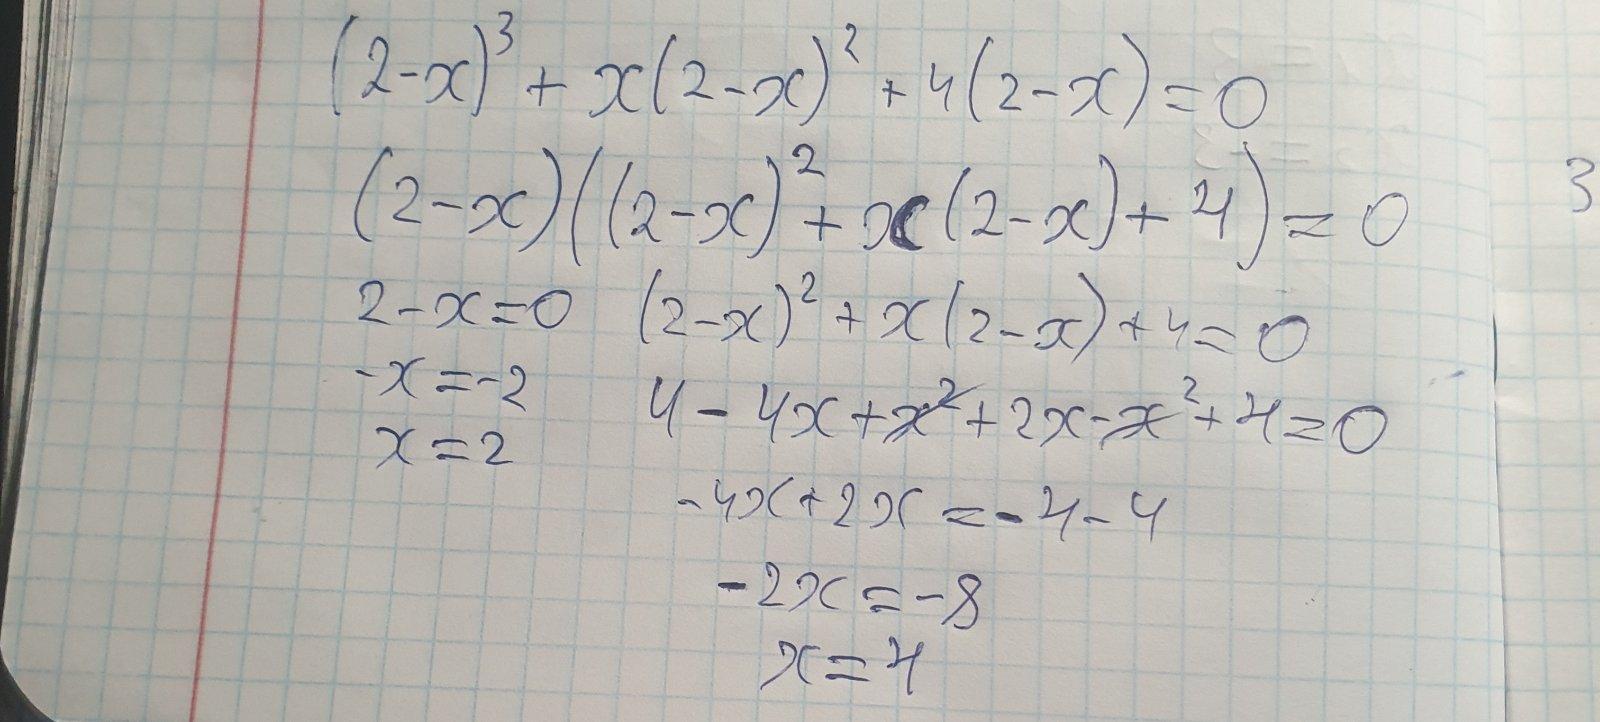 (2-x)³ + x(2-x)² + 4(2-x) = 0
(2-x)((2-x)² + x(2-x) + 4) = 0
3
2-x=0 (2-x)² + x(2-x) + 4 = 0
-x=-2 4 - 4x + x² + 2x - x² + 4 = 0
x=2
-4x + 2x = -4 - 4
-2x = -8
x = 4